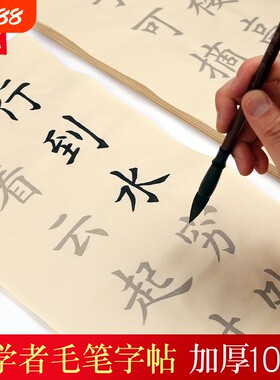 88
楼高
可摘
行到水穷
看云起
学者毛笔字帖 加厚10